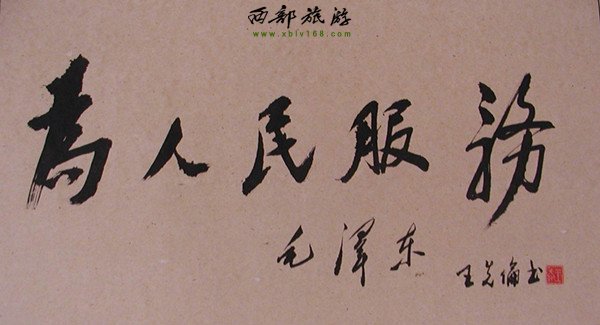 西部旅游
www.xblv168.com
為人民服務
毛澤东
王光倫书